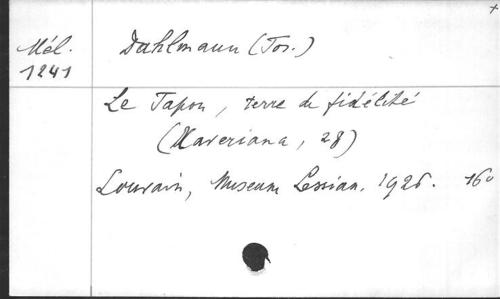 +
Mél.
1241
Dahlmann (Jos.)
Le Japon, terre de fidélité
(Xaveriana, 28)
Louvain, Museum Lessian. 1926. 16°